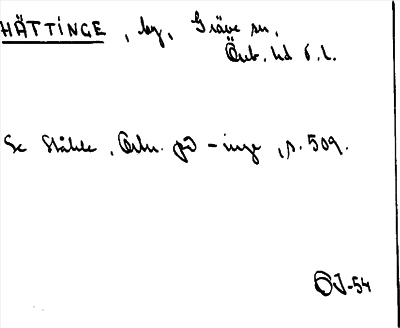 HÄTTINGE, by, Gräve sn,
Öreb. hd Ö. l.
Se Ståhle, Ortn. på -inge, s. 509.
OJ-54